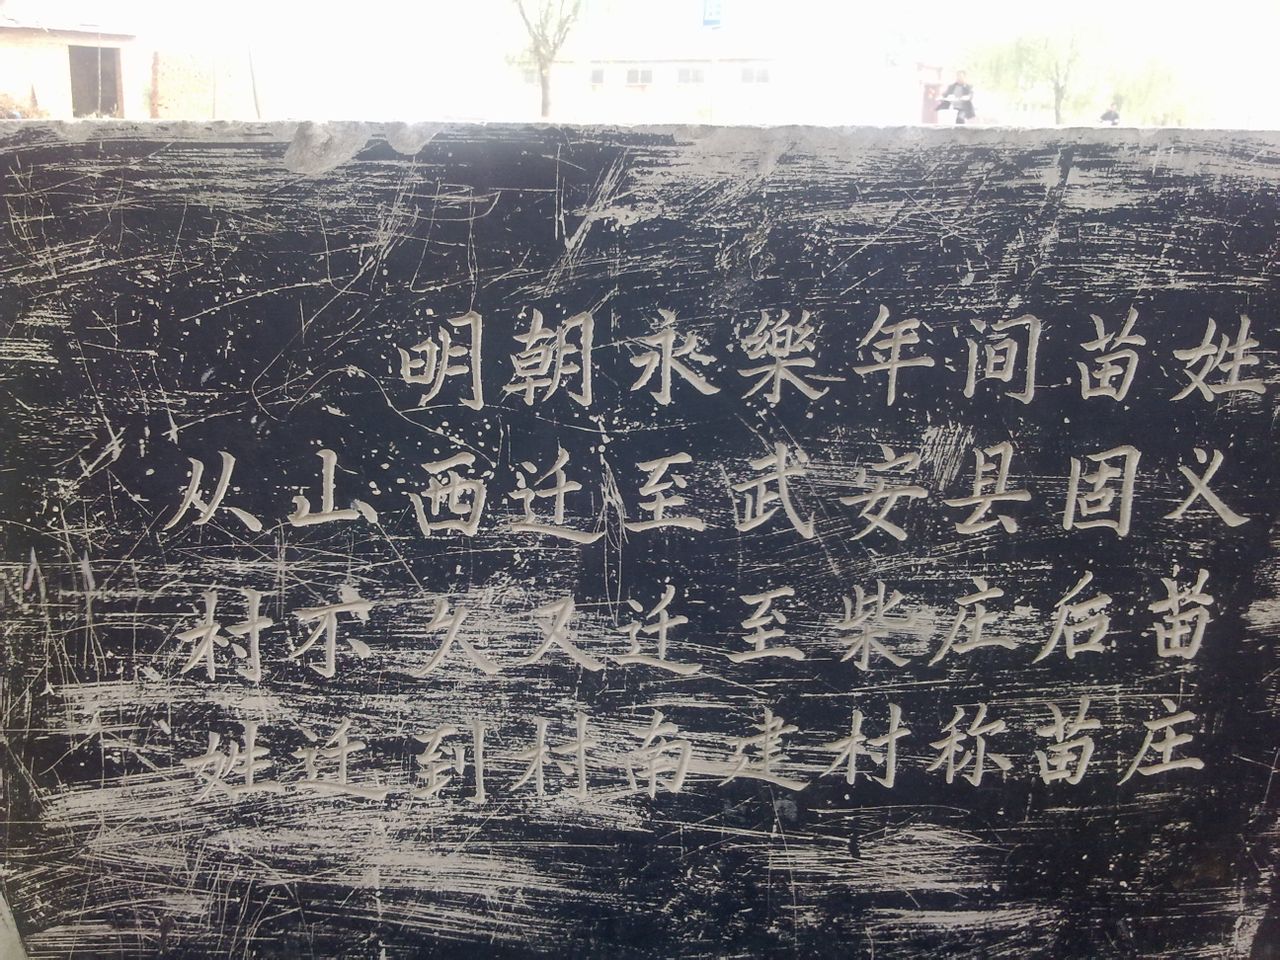 明朝永樂年间苗姓
从山西迁至武安县固义
村不久又迁至柴庄后苗
姓迁到村南建村称苗庄